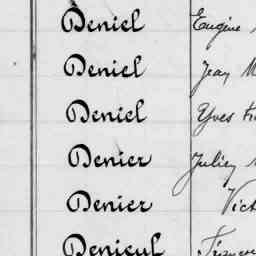 Deniel Eugène
Deniel Jean M
Deniel Yves
Denier Julien
Denier Vict
Denieul